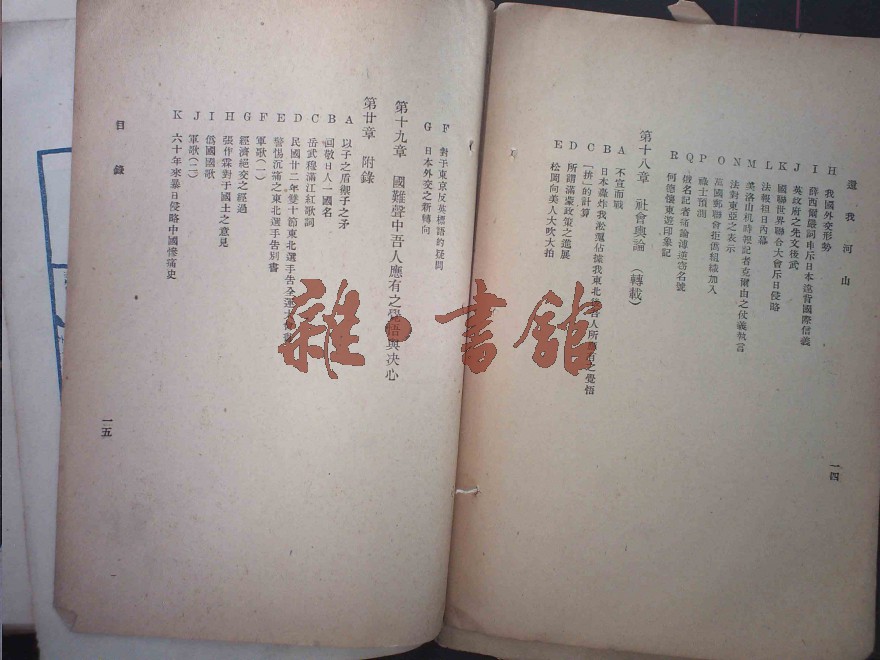 還我河山
H 我國外交形勢
I 薛西爾嚴詞申斥日本違背國際信義
J 英政府之先文後武
K 國聯世界聯合大會斥日侵略
L 法報袒日內幕
M 美洛山机時報記者克爾由之仗義執言
N 法對東亞之表示
O 萬國郵聯會拒僞組織加入
P 識士預測
Q 俄名記者痛論溥逆竊名號
R 何德蘭東遊印象記
第十八章 社會輿論 (轉載)
A 不宣而戰
B 日本轟炸我淞滬佔據我東北後吾人所應有之覺悟
C 「拚」的計算
D 所謂滿蒙政策之進展
E 松岡向美人大吹大拍
一四
F 對于東京反英標語的疑問
G 日本外交之新轉向
第十九章 國難聲中吾人應有之覺悟與決心
第廿章 附錄
A 以子之盾觀子之矛
B 回敬日人一國名
C 岳武穆滿江紅歌詞
D 民國廿二年雙十節東北選手告全運大會書
E 警惕沉痛之東北選手告別書
F 軍歌(一)
G 經濟絕交之經過
H 張作霖對于國土之意見
I 僞國國歌
J 軍歌(二)
K 六十年來暴日侵略中國慘痛史
目錄
一五
雜·書館